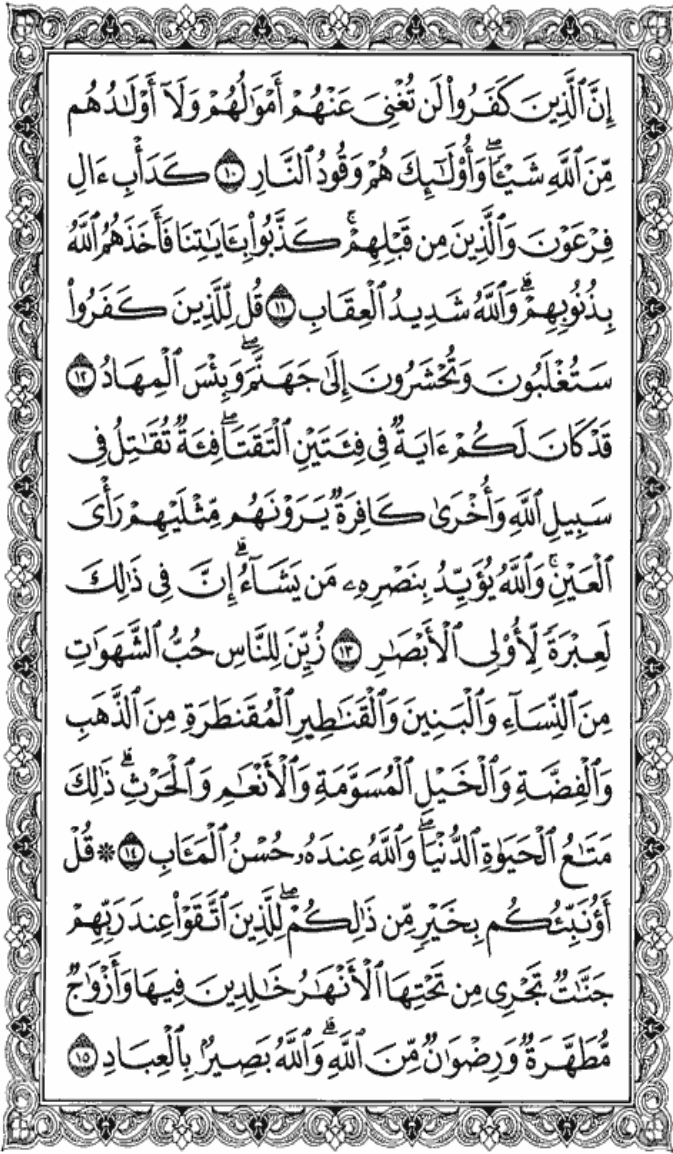 إِنَّ ٱلَّذِينَ كَفَرُوا۟ لَن تُغْنِىَ عَنْهُمْ أَمْوَٰلُهُمْ وَلَآ أَوْلَـٰدُهُم
مِّنَ ٱللَّهِ شَيْـًٔا ۖ وَأُو۟لَـٰٓئِكَ هُمْ وَقُودُ ٱلنَّارِ ١٠ كَدَأْبِ ءَالِ
فِرْعَوْنَ وَٱلَّذِينَ مِن قَبْلِهِمْ ۚ كَذَّبُوا۟ بِـَٔايَـٰتِنَا فَأَخَذَهُمُ ٱللَّهُ
بِذُنُوبِهِمْ ۗ وَٱللَّهُ شَدِيدُ ٱلْعِقَابِ ١١ قُل لِّلَّذِينَ كَفَرُوا۟
سَتُغْلَبُونَ وَتُحْشَرُونَ إِلَىٰ جَهَنَّمَ ۚ وَبِئْسَ ٱلْمِهَادُ ١٢
قَدْ كَانَ لَكُمْ ءَايَةٌ فِى فِئَتَيْنِ ٱلْتَقَتَا ۖ فِئَةٌ تُقَـٰتِلُ فِى
سَبِيلِ ٱللَّهِ وَأُخْرَىٰ كَافِرَةٌ يَرَوْنَهُم مِّثْلَيْهِمْ رَأْىَ
ٱلْعَيْنِ ۚ وَٱللَّهُ يُؤَيِّدُ بِنَصْرِهِۦ مَن يَشَآءُ ۗ إِنَّ فِى ذَٰلِكَ
لَعِبْرَةً لِّأُو۟لِى ٱلْأَبْصَـٰرِ ١٣ زُيِّنَ لِلنَّاسِ حُبُّ ٱلشَّهَوَٰتِ
مِنَ ٱلنِّسَآءِ وَٱلْبَنِينَ وَٱلْقَنَـٰطِيرِ ٱلْمُقَنطَرَةِ مِنَ ٱلذَّهَبِ
وَٱلْفِضَّةِ وَٱلْخَيْلِ ٱلْمُسَوَّمَةِ وَٱلْأَنْعَـٰمِ وَٱلْحَرْثِ ۗ ذَٰلِكَ
مَتَـٰعُ ٱلْحَيَوٰةِ ٱلدُّنْيَا ۖ وَٱللَّهُ عِندَهُۥ حُسْنُ ٱلْمَـَٔابِ ١٤ * قُلْ
أَؤُنَبِّئُكُم بِخَيْرٍ مِّن ذَٰلِكُمْ ۖ لِلَّذِينَ ٱتَّقَوْا۟ عِندَ رَبِّهِمْ
جَنَّـٰتٌ تَجْرِى مِن تَحْتِهَا ٱلْأَنْهَـٰرُ خَـٰلِدِينَ فِيهَا وَأَزْوَٰجٌ
مُّطَهَّرَةٌ وَرِضْوَٰنٌ مِّنَ ٱللَّهِ ۗ وَٱللَّهُ بَصِيرٌۢ بِٱلْعِبَادِ ١٥